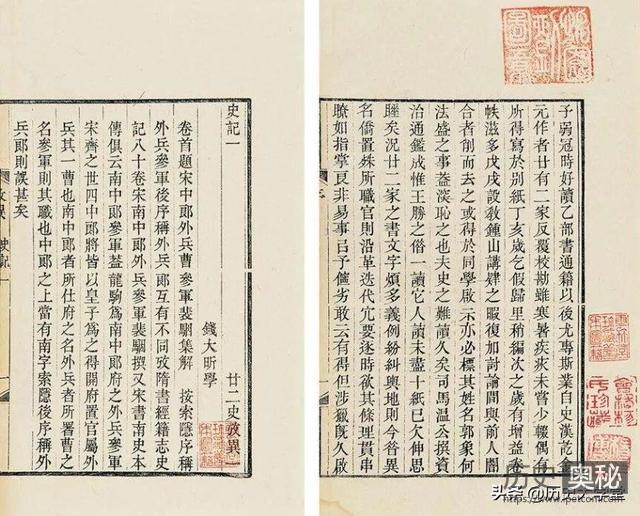 予弱冠時好讀乙部書通籍以後尤專斯業自史漢訖金
元作者廿有二家反覆校勘雖寒暑疾疢未嘗少輟偶有
所得寫於別紙丁亥歲乞假歸里稍編次之歲有增益卷
帙滋多戊戌設教鍾山講肄之暇復加討論間與前人闇
合者削而去之或得於同學啟示亦必標其姓名郭象何
法盛之事葢深恥之也夫史之難讀久矣司馬溫公撰資
治通鑑成惟王勝之借一讀它人讀未盡十紙已欠伸思
睡矣況廿二家之書文字煩多義例紛糾輿地則今昔異
名僑置殊所職官則沿革迭代冗要逐時欲其條理貫串
瞭如指掌良非易事㠯予儜劣敢云有得但涉獵既久啟
史記一 廿二史攷異一
錢大昕學
卷首題宋中郎外兵曹參軍裴駰集解 按索隱序稱
外兵參軍後序稱外兵郎互有不同攷隋書經籍志史
記八十卷宋南中郎外兵參軍裴駰撰又宋書南史本
傳俱云南中郎參軍葢龍駒為南中郎府之外兵參軍
宋齊之世四中郎將皆以皇子為之得開府置官屬外
兵其一曹也南中郎者所仕府之名外兵者所署曹之
名參軍則其職也中郎之上當有南字索隱後序稱外
兵郎則誤甚矣
历史奥秘
头条@历史